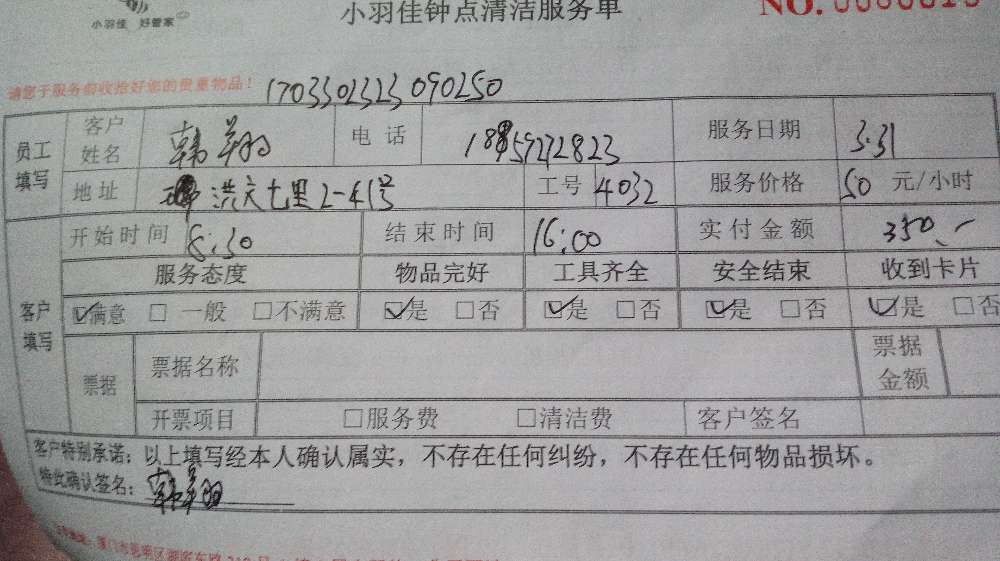 小羽佳 好管家
小羽佳钟点清洁服务单
NO.
请您于服务前收拾好您的贵重物品！ 1703302323090250
员工填写 客户姓名 韩羽 电话 服务日期 3.31
地址 洪文七里2-41号 工号 4032 服务价格 50 元/小时
客户填写 开始时间 8:30 结束时间 16:00 实付金额 350.-
服务态度 物品完好 工具齐全 安全结束 收到卡片
☑满意 □一般 □不满意 ☑是 □否 ☑是 □否 ☑是 □否 ☑是 □否
票据 票据名称 票据金额
开票项目 □服务费 □清洁费 客户签名
客户特别承诺：以上填写经本人确认属实，不存在任何纠纷，不存在任何物品损坏。
特此确认签名：